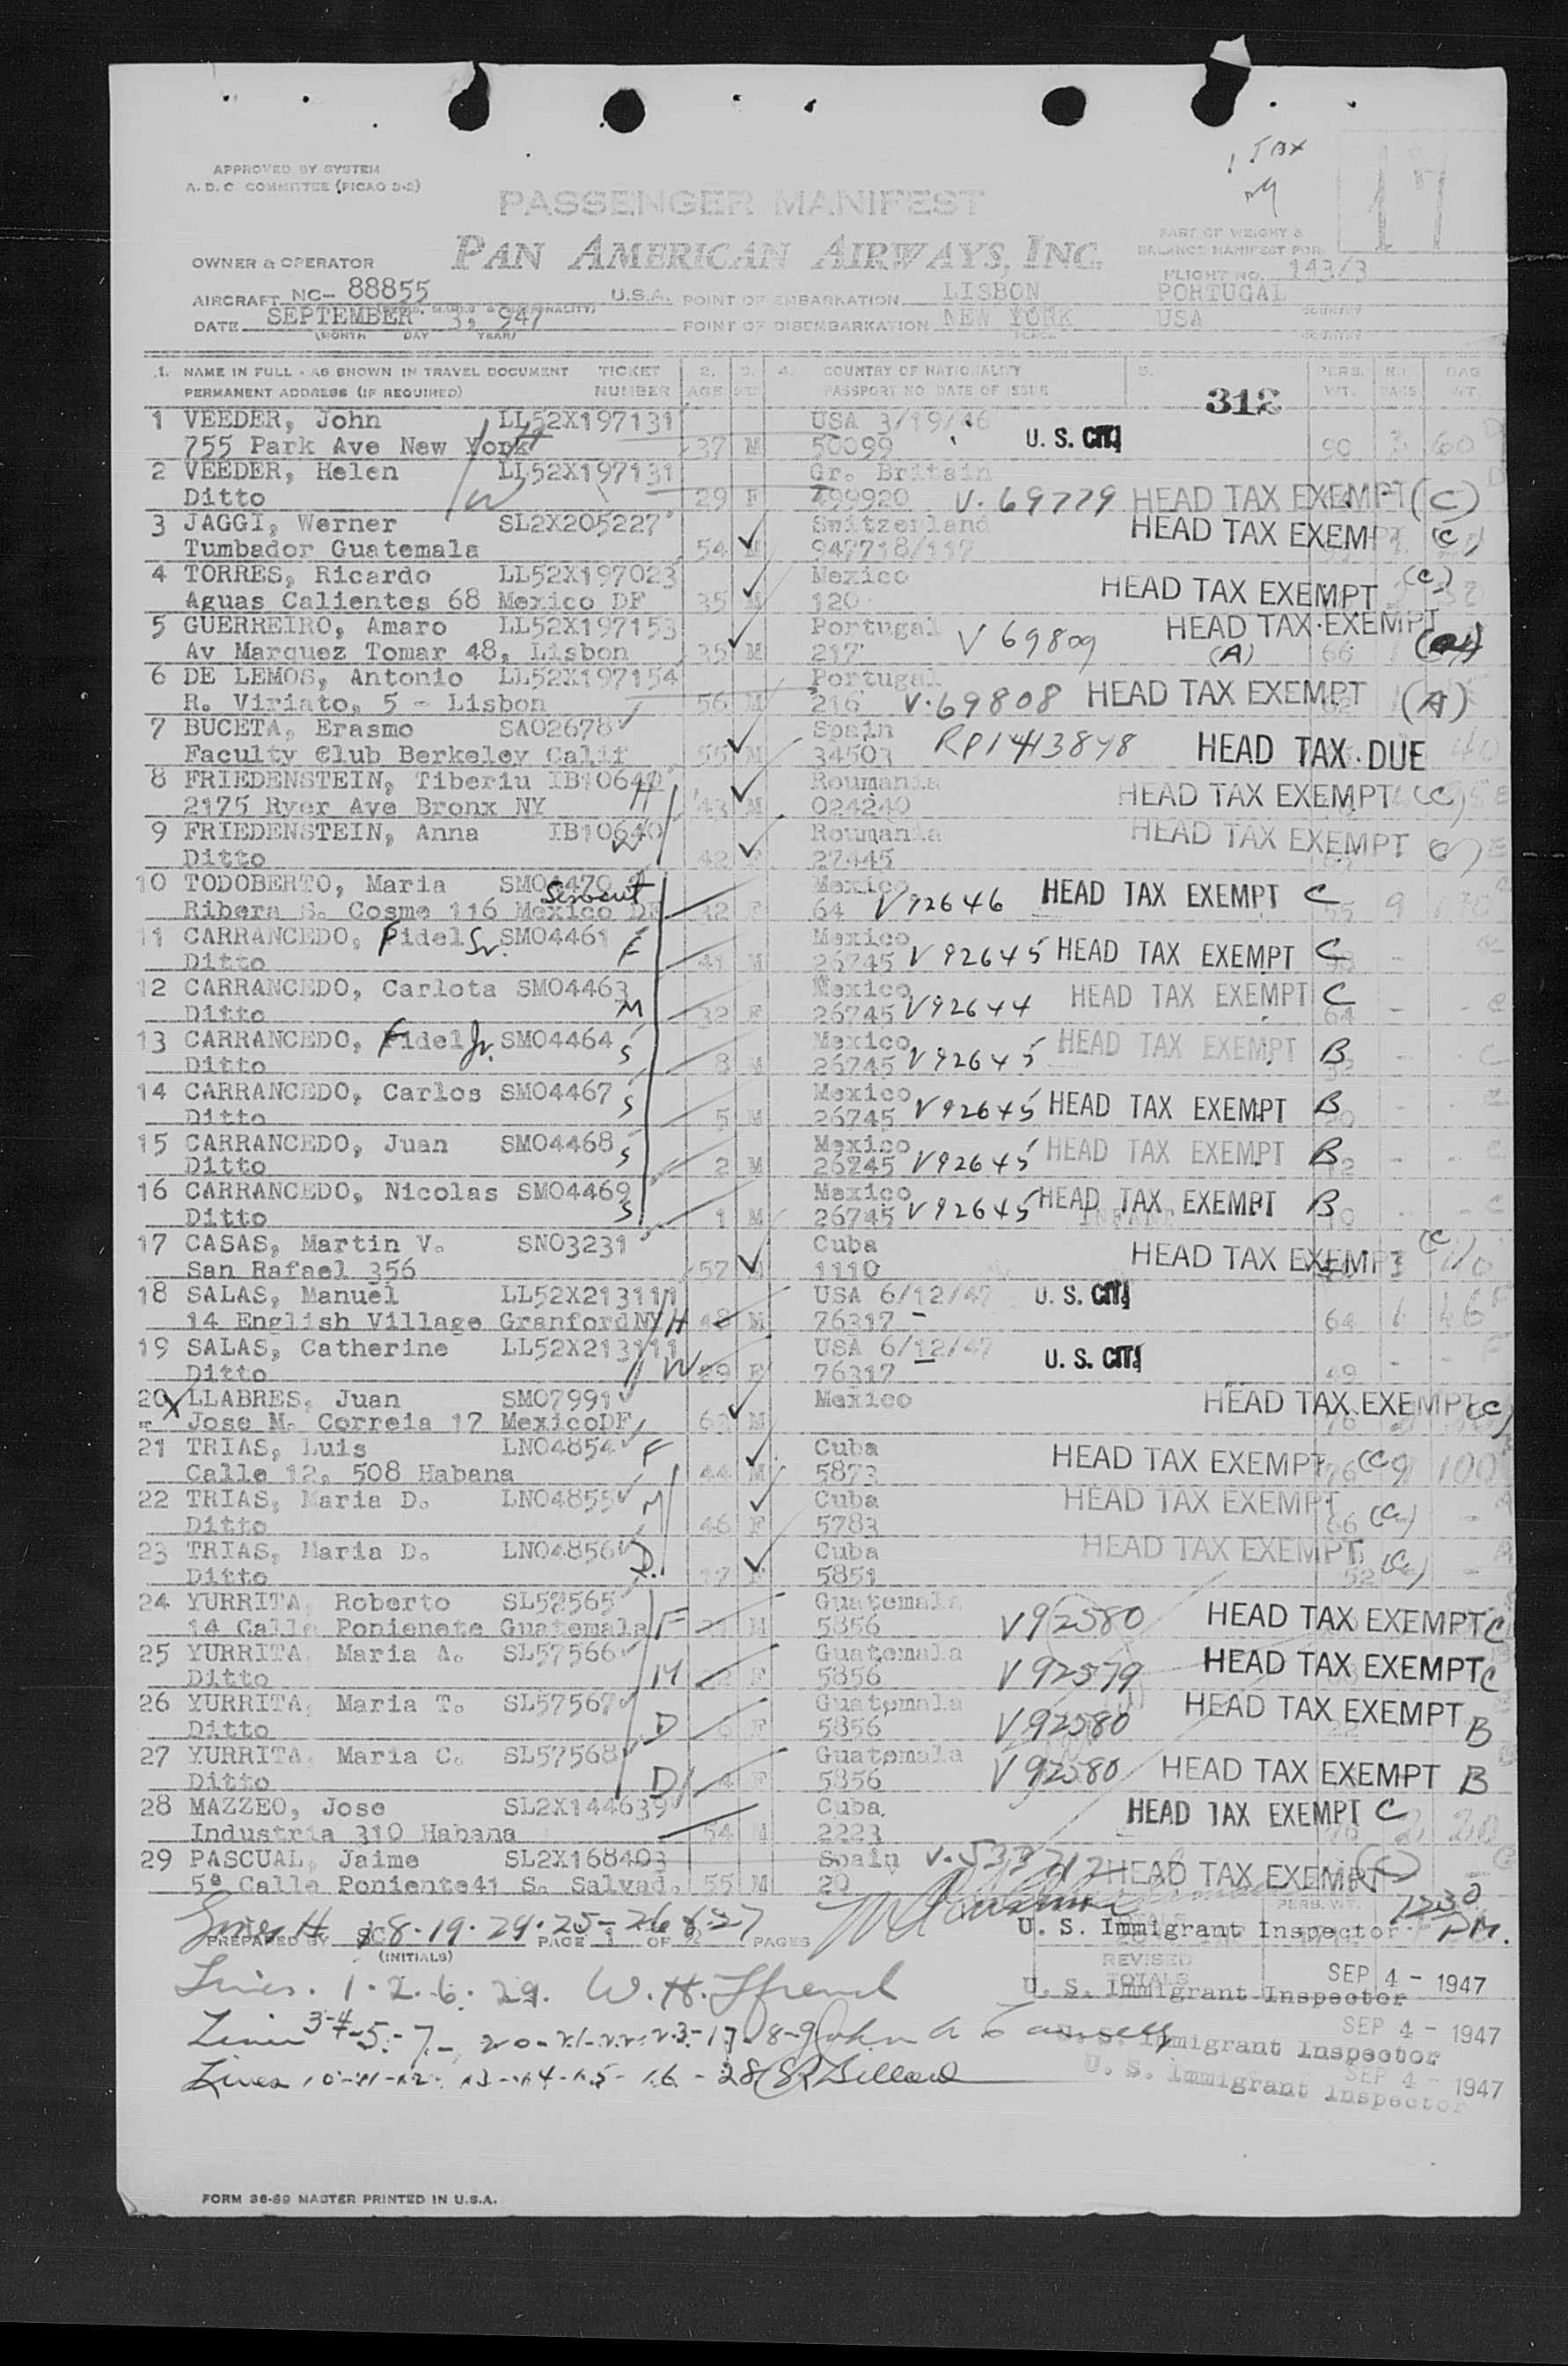 1 Tax
M
17
APPROVED BY SYSTEM
A. D. C. COMMITTEE (PICAO 3-2)
PASSENGER MANIFEST
PAN AMERICAN AIRWAYS, INC.
PART OF WEIGHT &
BALANCE MANIFEST FOR
OWNER & OPERATOR
FLIGHT NO. 143/3
AIRCRAFT NC- 88855 U.S.A. POINT OF EMBARKATION LISBON PORTUGAL COUNTRY
DATE SEPTEMBER 3, 947 POINT OF DISEMBARKATION NEW YORK USA
(MONTH DAY YEAR) PLACE COUNTRY
1. NAME IN FULL - AS SHOWN IN TRAVEL DOCUMENT TICKET 2. 3. 4. COUNTRY OF NATIONALITY 5. PERS. NO. BAG
PERMANENT ADDRESS (IF REQUIRED) NUMBER AGE SEX PASSPORT NO. DATE OF ISSUE 312 WT. BAGS WT.
1 VEEDER, John LL52X197131 USA 3/19/46
755 Park Ave New York H 37 M 50099 U. S. CIT. 90 3 60
2 VEEDER, Helen LL52X197131 Gr. Britain
Ditto W 29 F 499920 V. 69779 HEAD TAX EXEMPT (C)
3 JAGGI, Werner SL2X205227 Switzerland HEAD TAX EXEMPT (C)
Tumbador Guatemala 54 M 947718/117
4 TORRES, Ricardo LL52X197023 Mexico HEAD TAX EXEMPT (C)
Aguas Calientes 68 Mexico DF 35 M 120
5 GUERREIRO, Amaro LL52X197153 Portugal V 69809 HEAD TAX EXEMPT
Av Marquez Tomar 48, Lisbon 35 M 217 (A) 66
6 DE LEMOS, Antonio LL52X197154 Portugal
R. Viriato, 5 - Lisbon 56 M 216 V. 69808 HEAD TAX EXEMPT (A)
7 BUCETA, Erasmo SA02678 Spain RP1413848 HEAD TAX DUE
Faculty Club Berkeley Calif 55 M 34503
8 FRIEDENSTEIN, Tiberiu IB10640 H Roumania HEAD TAX EXEMPT (C)
2175 Ryer Ave Bronx NY 43 M 024240
9 FRIEDENSTEIN, Anna IB10640 W Roumania HEAD TAX EXEMPT (C)
Ditto 42 F 27445
10 TODOBERTO, Maria SM04470 Servant Mexico V92646 HEAD TAX EXEMPT C
Ribera S. Cosme 116 Mexico DF 42 F 64 55 9
11 CARRANCEDO, Fidel Sr. SM04461 F Mexico V92645 HEAD TAX EXEMPT C
Ditto 41 M 26745
12 CARRANCEDO, Carlota SM04463 M Mexico V92644 HEAD TAX EXEMPT C
Ditto 32 F 26745 64
13 CARRANCEDO, Fidel Jr. SM04464 S Mexico V92645 HEAD TAX EXEMPT B
Ditto 8 M 26745
14 CARRANCEDO, Carlos SM04467 S Mexico V92645 HEAD TAX EXEMPT B
Ditto 5 M 26745
15 CARRANCEDO, Juan SM04468 S Mexico V92645 HEAD TAX EXEMPT B
Ditto 2 M 26745 12
16 CARRANCEDO, Nicolas SM04469 S Mexico V92645 HEAD TAX EXEMPT B
Ditto 1 M 26745 INFANT 10
17 CASAS, Martin V. SN03231 Cuba HEAD TAX EXEMPT (C)
San Rafael 356 57 M 1110
18 SALAS, Manuel LL52X213111 USA 6/12/47 U. S. CIT.
14 English Village Granford NY H M 76317 64
19 SALAS, Catherine LL52X213111 USA 6/12/47 U. S. CIT.
Ditto W F 76317 49
20 X LLABRES, Juan SM07991 Mexico HEAD TAX EXEMPT (C)
Jose M. Correia 17 MexicoDF M 76
21 TRIAS, Luis LN04854 F Cuba HEAD TAX EXEMPT (C)
Calle 12, 508 Habana 44 M 5873 76 100
22 TRIAS, Maria D. LN04855 M Cuba HEAD TAX EXEMPT (C)
Ditto 46 F 5783 66
23 TRIAS, Maria D. LN04856 D. Cuba HEAD TAX EXEMPT (C)
Ditto 17 F 5851 52
24 YURRITA, Roberto SL52565 F Guatemala V92580 HEAD TAX EXEMPT C
14 Calle Ponienete Guatemala M 5856
25 YURRITA, Maria A. SL57566 M Guatemala V92579 HEAD TAX EXEMPT C
Ditto F 5856
26 YURRITA, Maria T. SL57567 D Guatemala V92580 HEAD TAX EXEMPT B
Ditto 6 F 5856
27 YURRITA, Maria C. SL57568 D Guatemala V92580 HEAD TAX EXEMPT B
Ditto 4 F 5856
28 MAZZEO, Jose SL2X144639 Cuba HEAD TAX EXEMPT C
Industria 310 Habana 54 M 2223 2 20
29 PASCUAL, Jaime SL2X168403 Spain V. 533212 HEAD TAX EXEMPT (C)
5ª Calle Poniente41 S. Salvad. 55 M 20
Lines 18-19-24-25-26 & 27 U. S. Immigrant Inspector 1230 PM.
PREPARED BY (INITIALS) PAGE 1 OF 2 PAGES
REVISED TOTALS
Lines. 1. 2. 6. 29. W. H. U. S. Immigrant Inspector SEP 4 - 1947
Lines 3-4-5-7-20-21-22-23-17-8-9 John A U. S. Immigrant Inspector SEP 4 - 1947
Lines 10-11-12-13-14-15-16-28 U. S. Immigrant Inspector SEP 4 - 1947
FORM 36-89 MASTER PRINTED IN U.S.A.